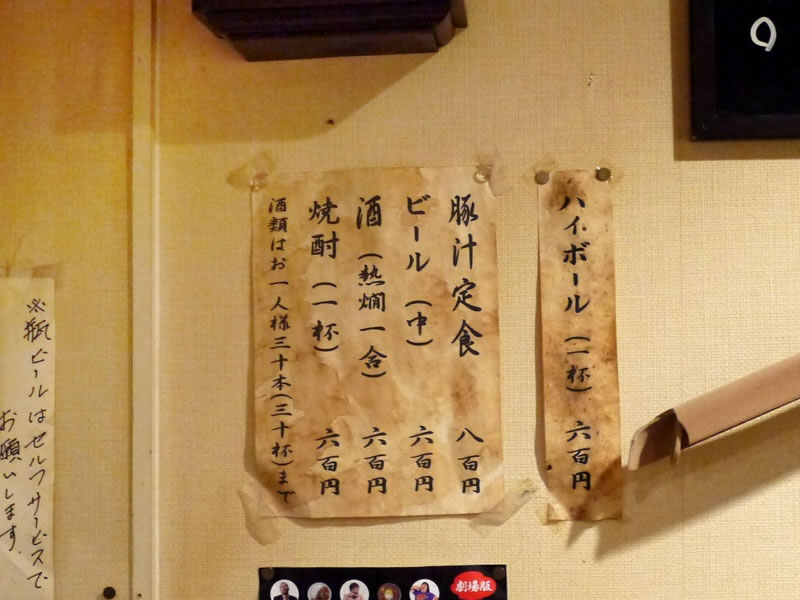 ハイボール（一杯） 六百円
豚汁定食 八百円
ビール（中） 六百円
酒（熱燗一合） 六百円
焼酎（一杯） 六百円
酒類はお一人様三十本（三十杯）まで
※瓶ビールはセルフサービスで
お願いします。
劇場版